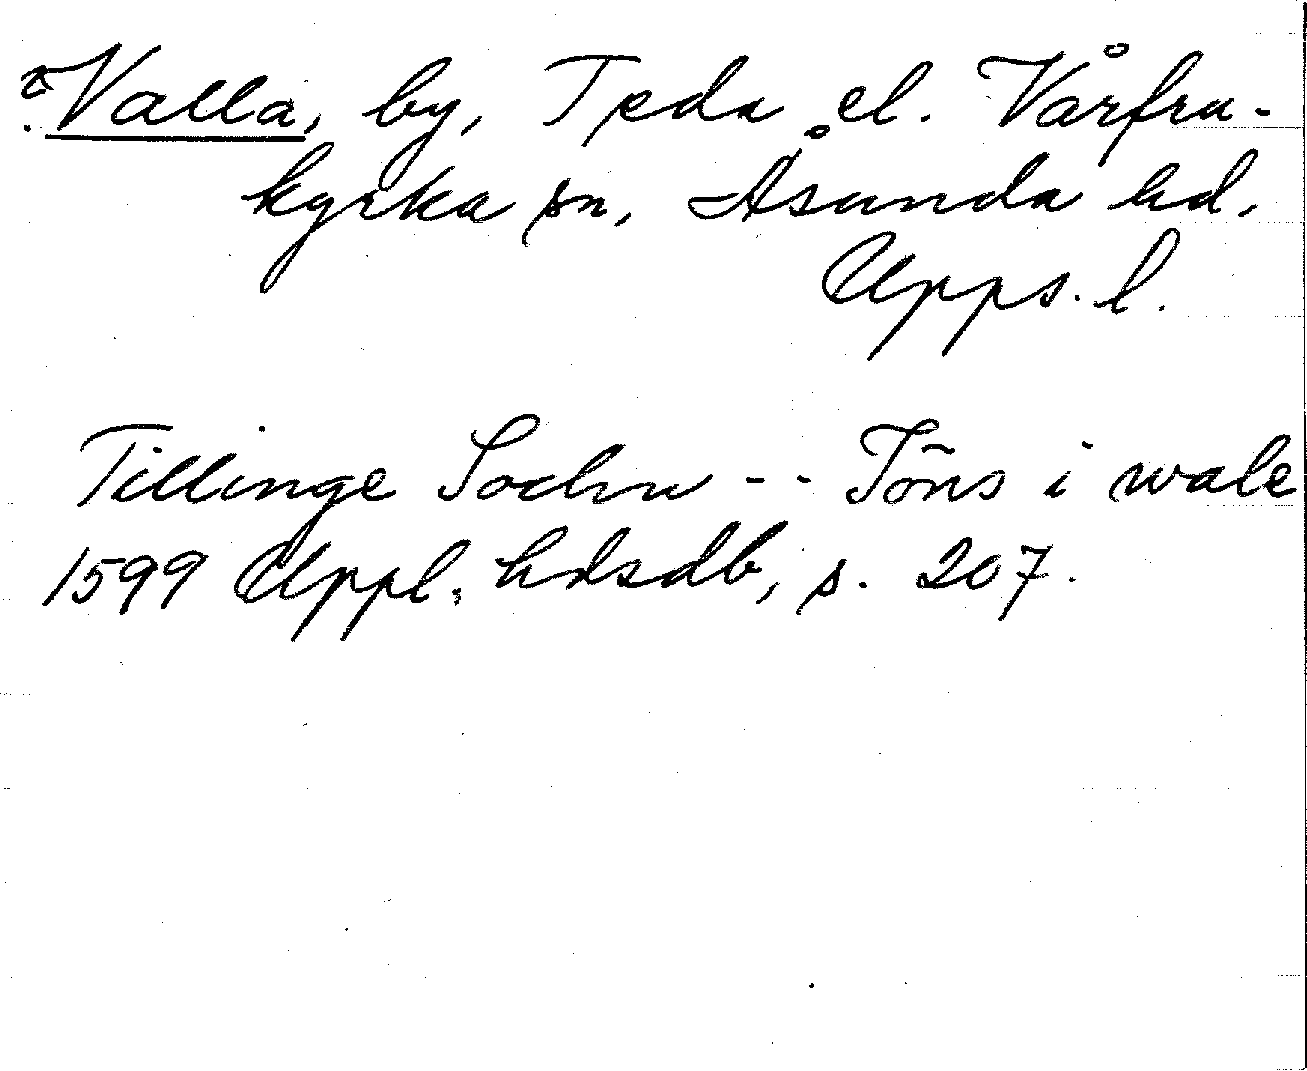 ? Valla, by, Teda el. Vårfru-
kyrka sn, Åsunda hd,
Upps. l.
Tillinge Sochn -- Töns i wale
1599 Uppl. hdsdb, s. 207.